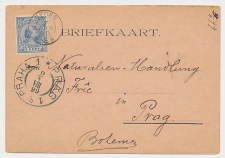 BRIEFKAART.
Naturalien-Handlung
Frič
in
Prag.
Boheme
PRAHA 1
PRAG 1